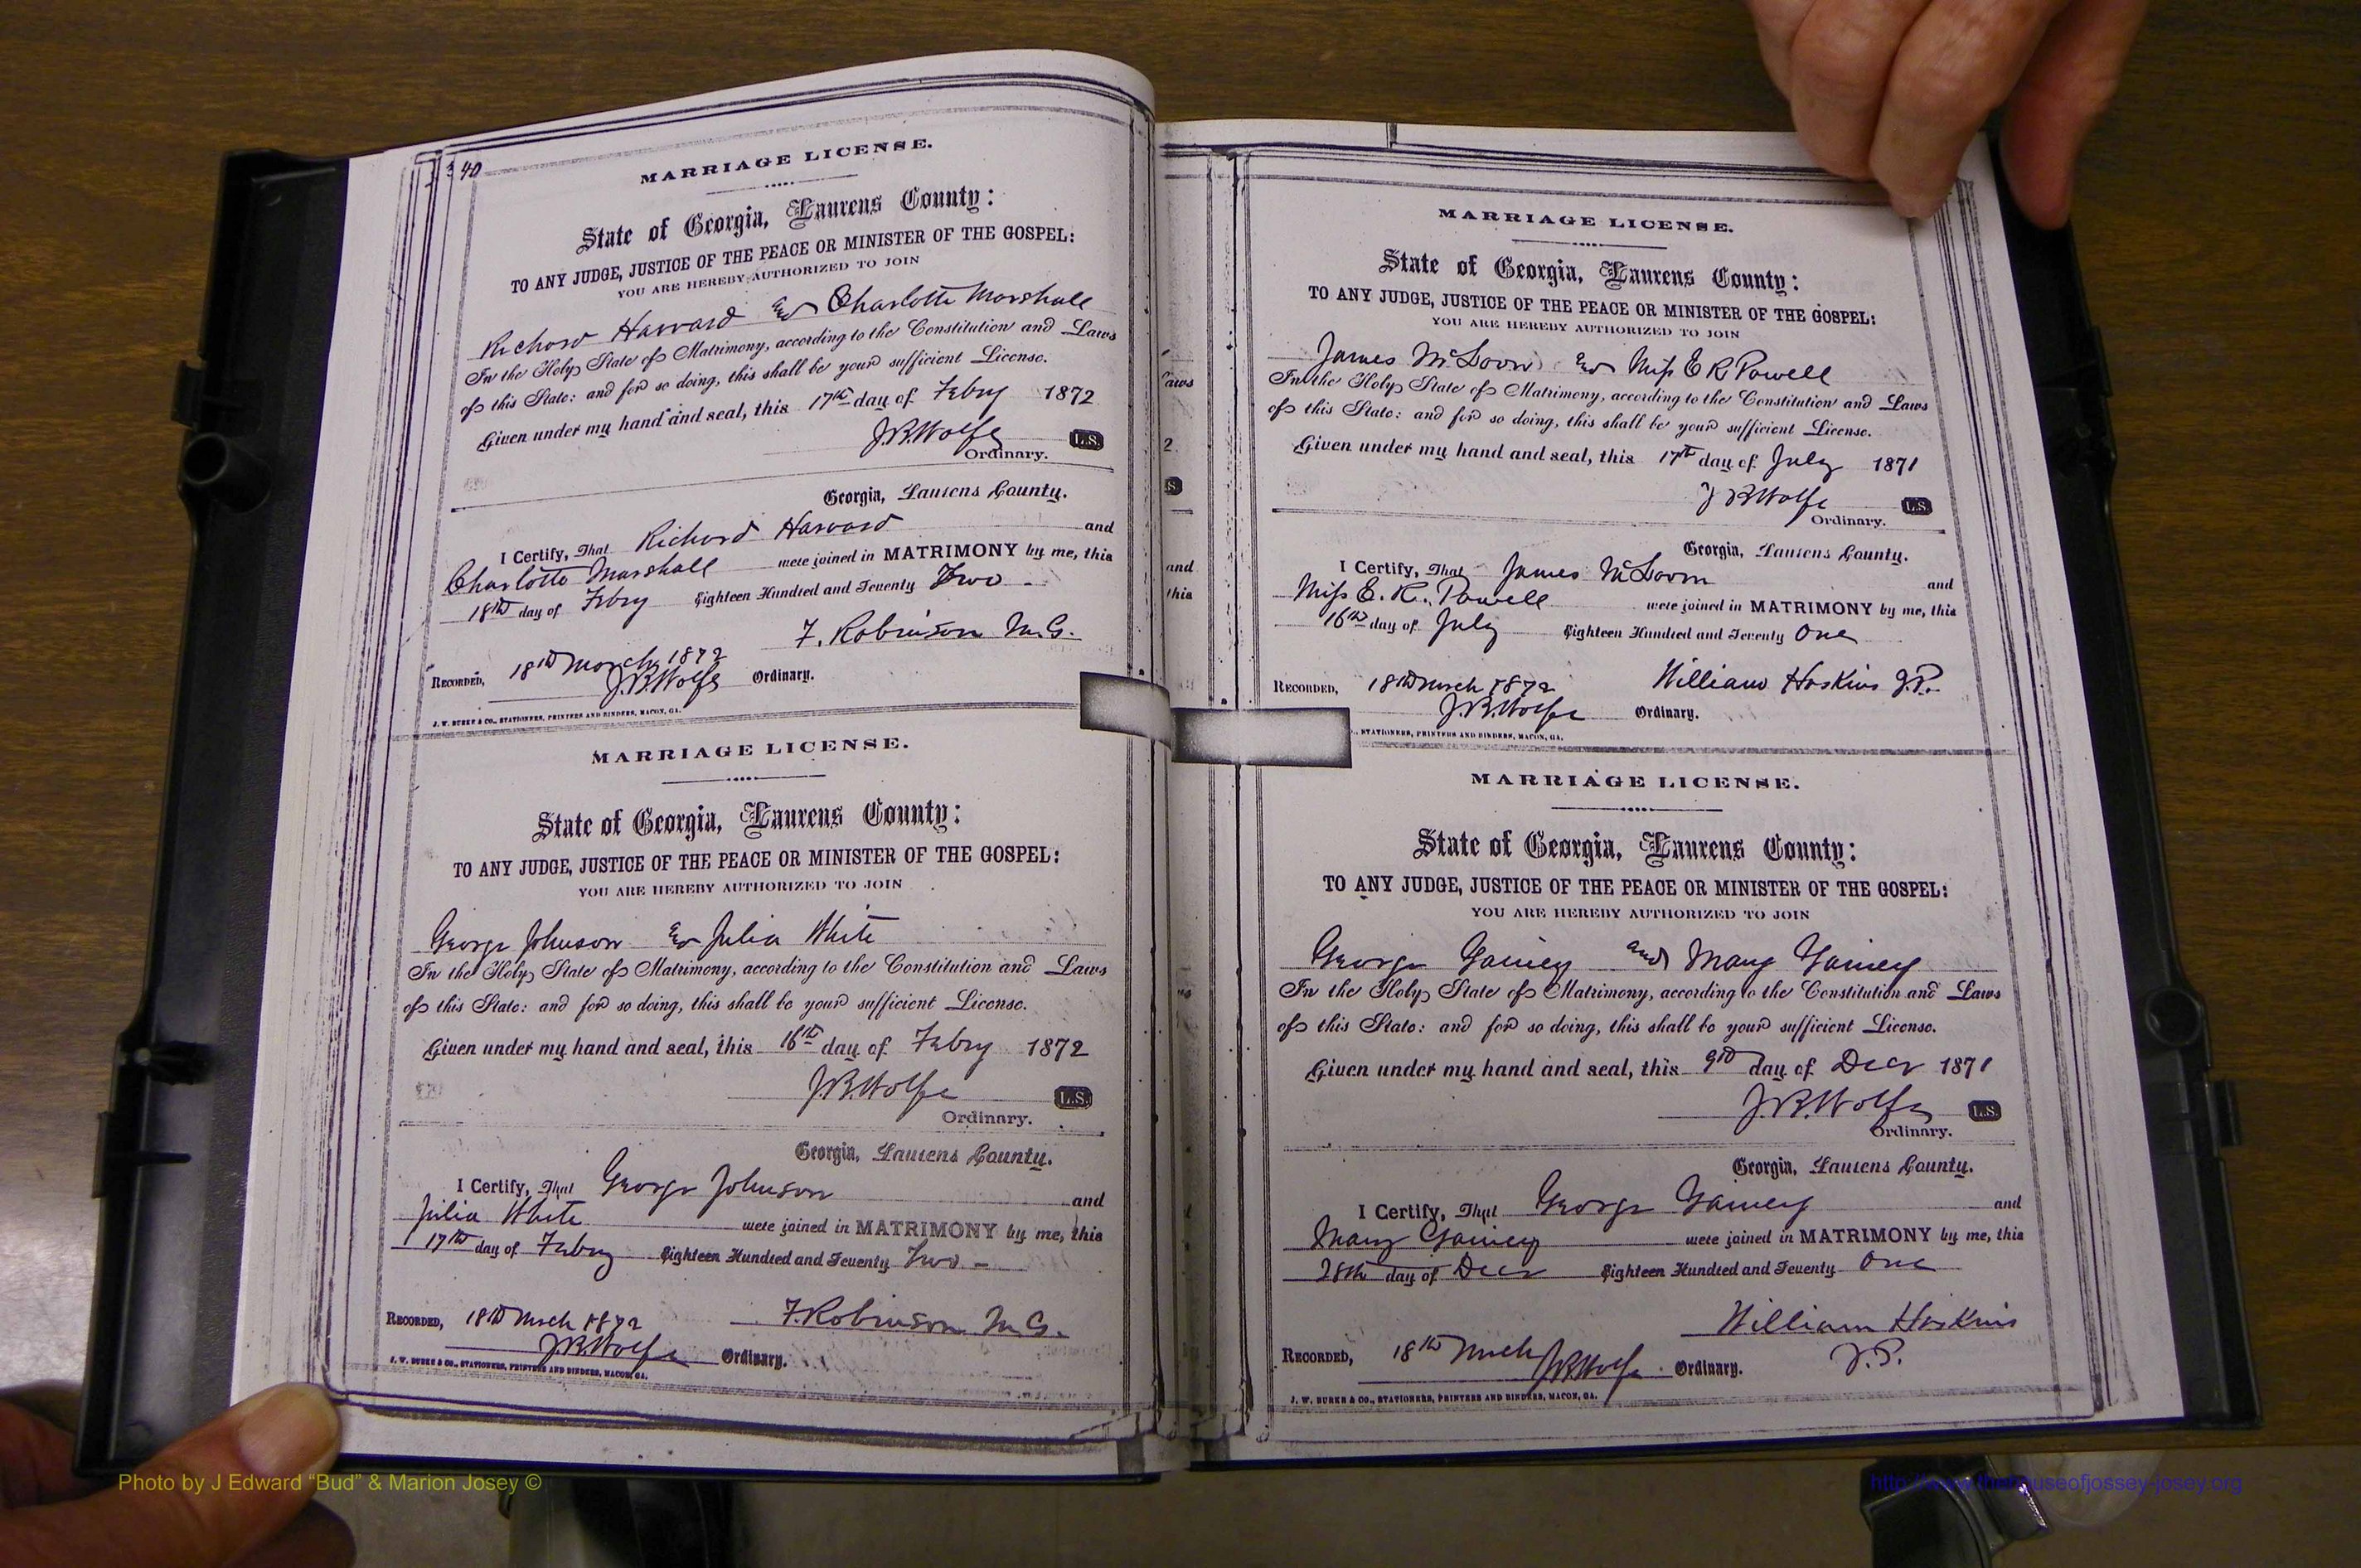 340
MARRIAGE LICENSE.
State of Georgia, Laurens County:
TO ANY JUDGE, JUSTICE OF THE PEACE OR MINISTER OF THE GOSPEL:
YOU ARE HEREBY AUTHORIZED TO JOIN
Richard Harvard & Charlotte Marshall
In the Holy State of Matrimony, according to the Constitution and Laws
of this State: and for so doing, this shall be your sufficient License.
Given under my hand and seal, this 17th day of Febry 1872
J.B. Wolfe L.S.
Ordinary.
Georgia, Laurens County.
I Certify, That Richard Harvard and
Charlotte Marshall were joined in MATRIMONY by me, this
18th day of Febry Eighteen Hundred and Seventy Two
F. Robinson M.G.
RECORDED, 18th March 1872
J.B. Wolfe Ordinary.
J. W. BURKE & CO., STATIONERS, PRINTERS AND BINDERS, MACON, GA.
MARRIAGE LICENSE.
State of Georgia, Laurens County:
TO ANY JUDGE, JUSTICE OF THE PEACE OR MINISTER OF THE GOSPEL:
YOU ARE HEREBY AUTHORIZED TO JOIN
George Johnson & Julia White
In the Holy State of Matrimony, according to the Constitution and Laws
of this State: and for so doing, this shall be your sufficient License.
Given under my hand and seal, this 16th day of Febry 1872
J.B. Wolfe L.S.
Ordinary.
Georgia, Laurens County.
I Certify, That George Johnson and
Julia White were joined in MATRIMONY by me, this
17th day of Febry Eighteen Hundred and Seventy Two -
F. Robinson M.G.
RECORDED, 18th Mrch 1872
J.B. Wolfe Ordinary.
J. W. BURKE & CO., STATIONERS, PRINTERS AND BINDERS, MACON, GA.
aws
2
S
and
this
MARRIAGE LICENSE.
State of Georgia, Laurens County:
TO ANY JUDGE, JUSTICE OF THE PEACE OR MINISTER OF THE GOSPEL:
YOU ARE HEREBY AUTHORIZED TO JOIN
James McLoon & Miss E R Powell
In the Holy State of Matrimony, according to the Constitution and Laws
of this State: and for so doing, this shall be your sufficient License.
Given under my hand and seal, this 17th day of July 1871
J B Wolfe L.S.
Ordinary.
Georgia, Laurens County.
I Certify, That James McLoon and
Miss E. R. Powell were joined in MATRIMONY by me, this
16th day of July Eighteen Hundred and Seventy One
William Hoskins J.P.
RECORDED, 18th Mrch 1872
J.B. Wolfe Ordinary.
, STATIONERS, PRINTERS AND BINDERS, MACON, GA.
MARRIAGE LICENSE.
State of Georgia, Laurens County:
TO ANY JUDGE, JUSTICE OF THE PEACE OR MINISTER OF THE GOSPEL:
YOU ARE HEREBY AUTHORIZED TO JOIN
George Gainey and Mary Gainey
In the Holy State of Matrimony, according to the Constitution and Laws
of this State: and for so doing, this shall be your sufficient License.
Given under my hand and seal, this 9th day of Decr 1871
J.B. Wolfe L.S.
Ordinary.
Georgia, Laurens County.
I Certify, That George Gainey and
Mary Gainey were joined in MATRIMONY by me, this
28th day of Decr Eighteen Hundred and Seventy One
William Hoskins
J.P.
RECORDED, 18th Mrch J.B. Wolfe Ordinary.
J. W. BURKE & CO., STATIONERS, PRINTERS AND BINDERS, MACON, GA.
Photo by J Edward "Bud" & Marion Josey ©
http://www.thehouseofjossey-josey.org